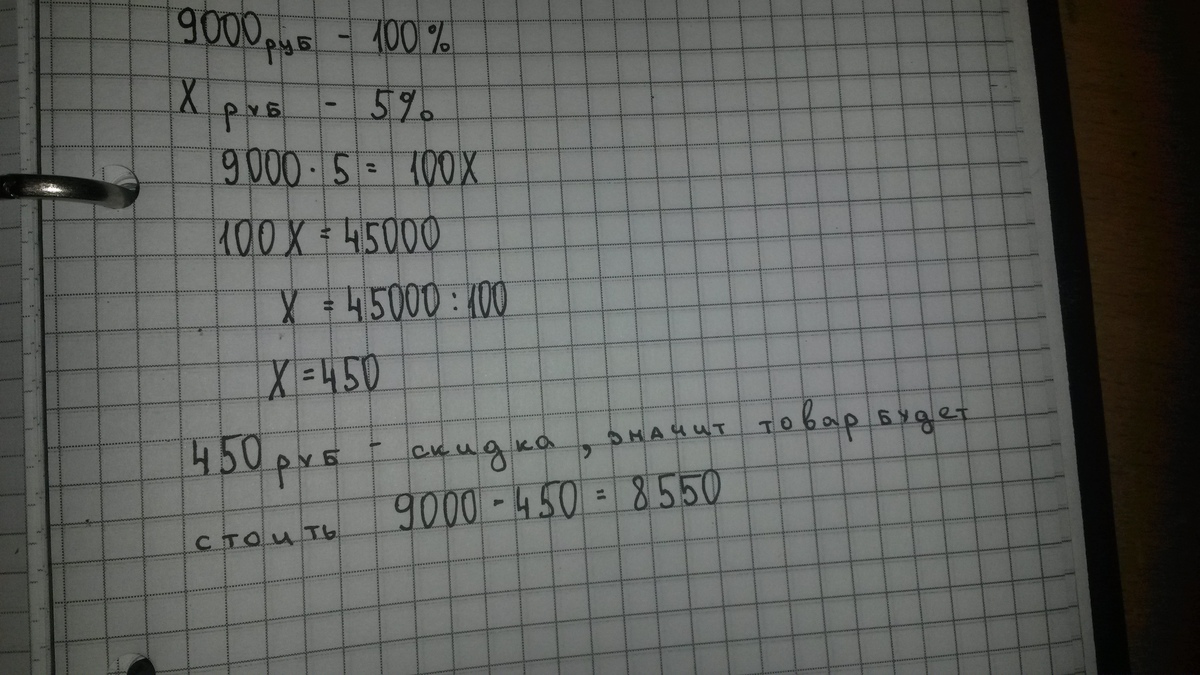 9000 руб - 100%
X руб - 5%
9000 · 5 = 100X
100X = 45000
X = 45000 : 100
X = 450
450 руб - скидка, значит товар будет
стоить 9000 - 450 = 8550